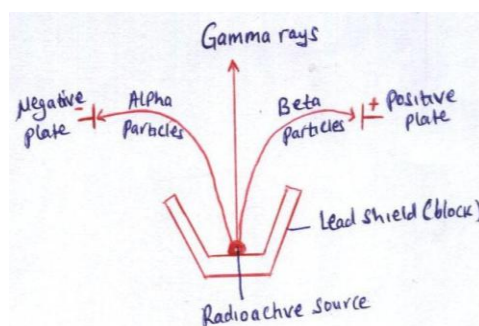 Gamma rays
Negative
plate
-
Alpha
particles
Beta
particles
+
Positive
plate
Lead shield (block)
Radioactive source